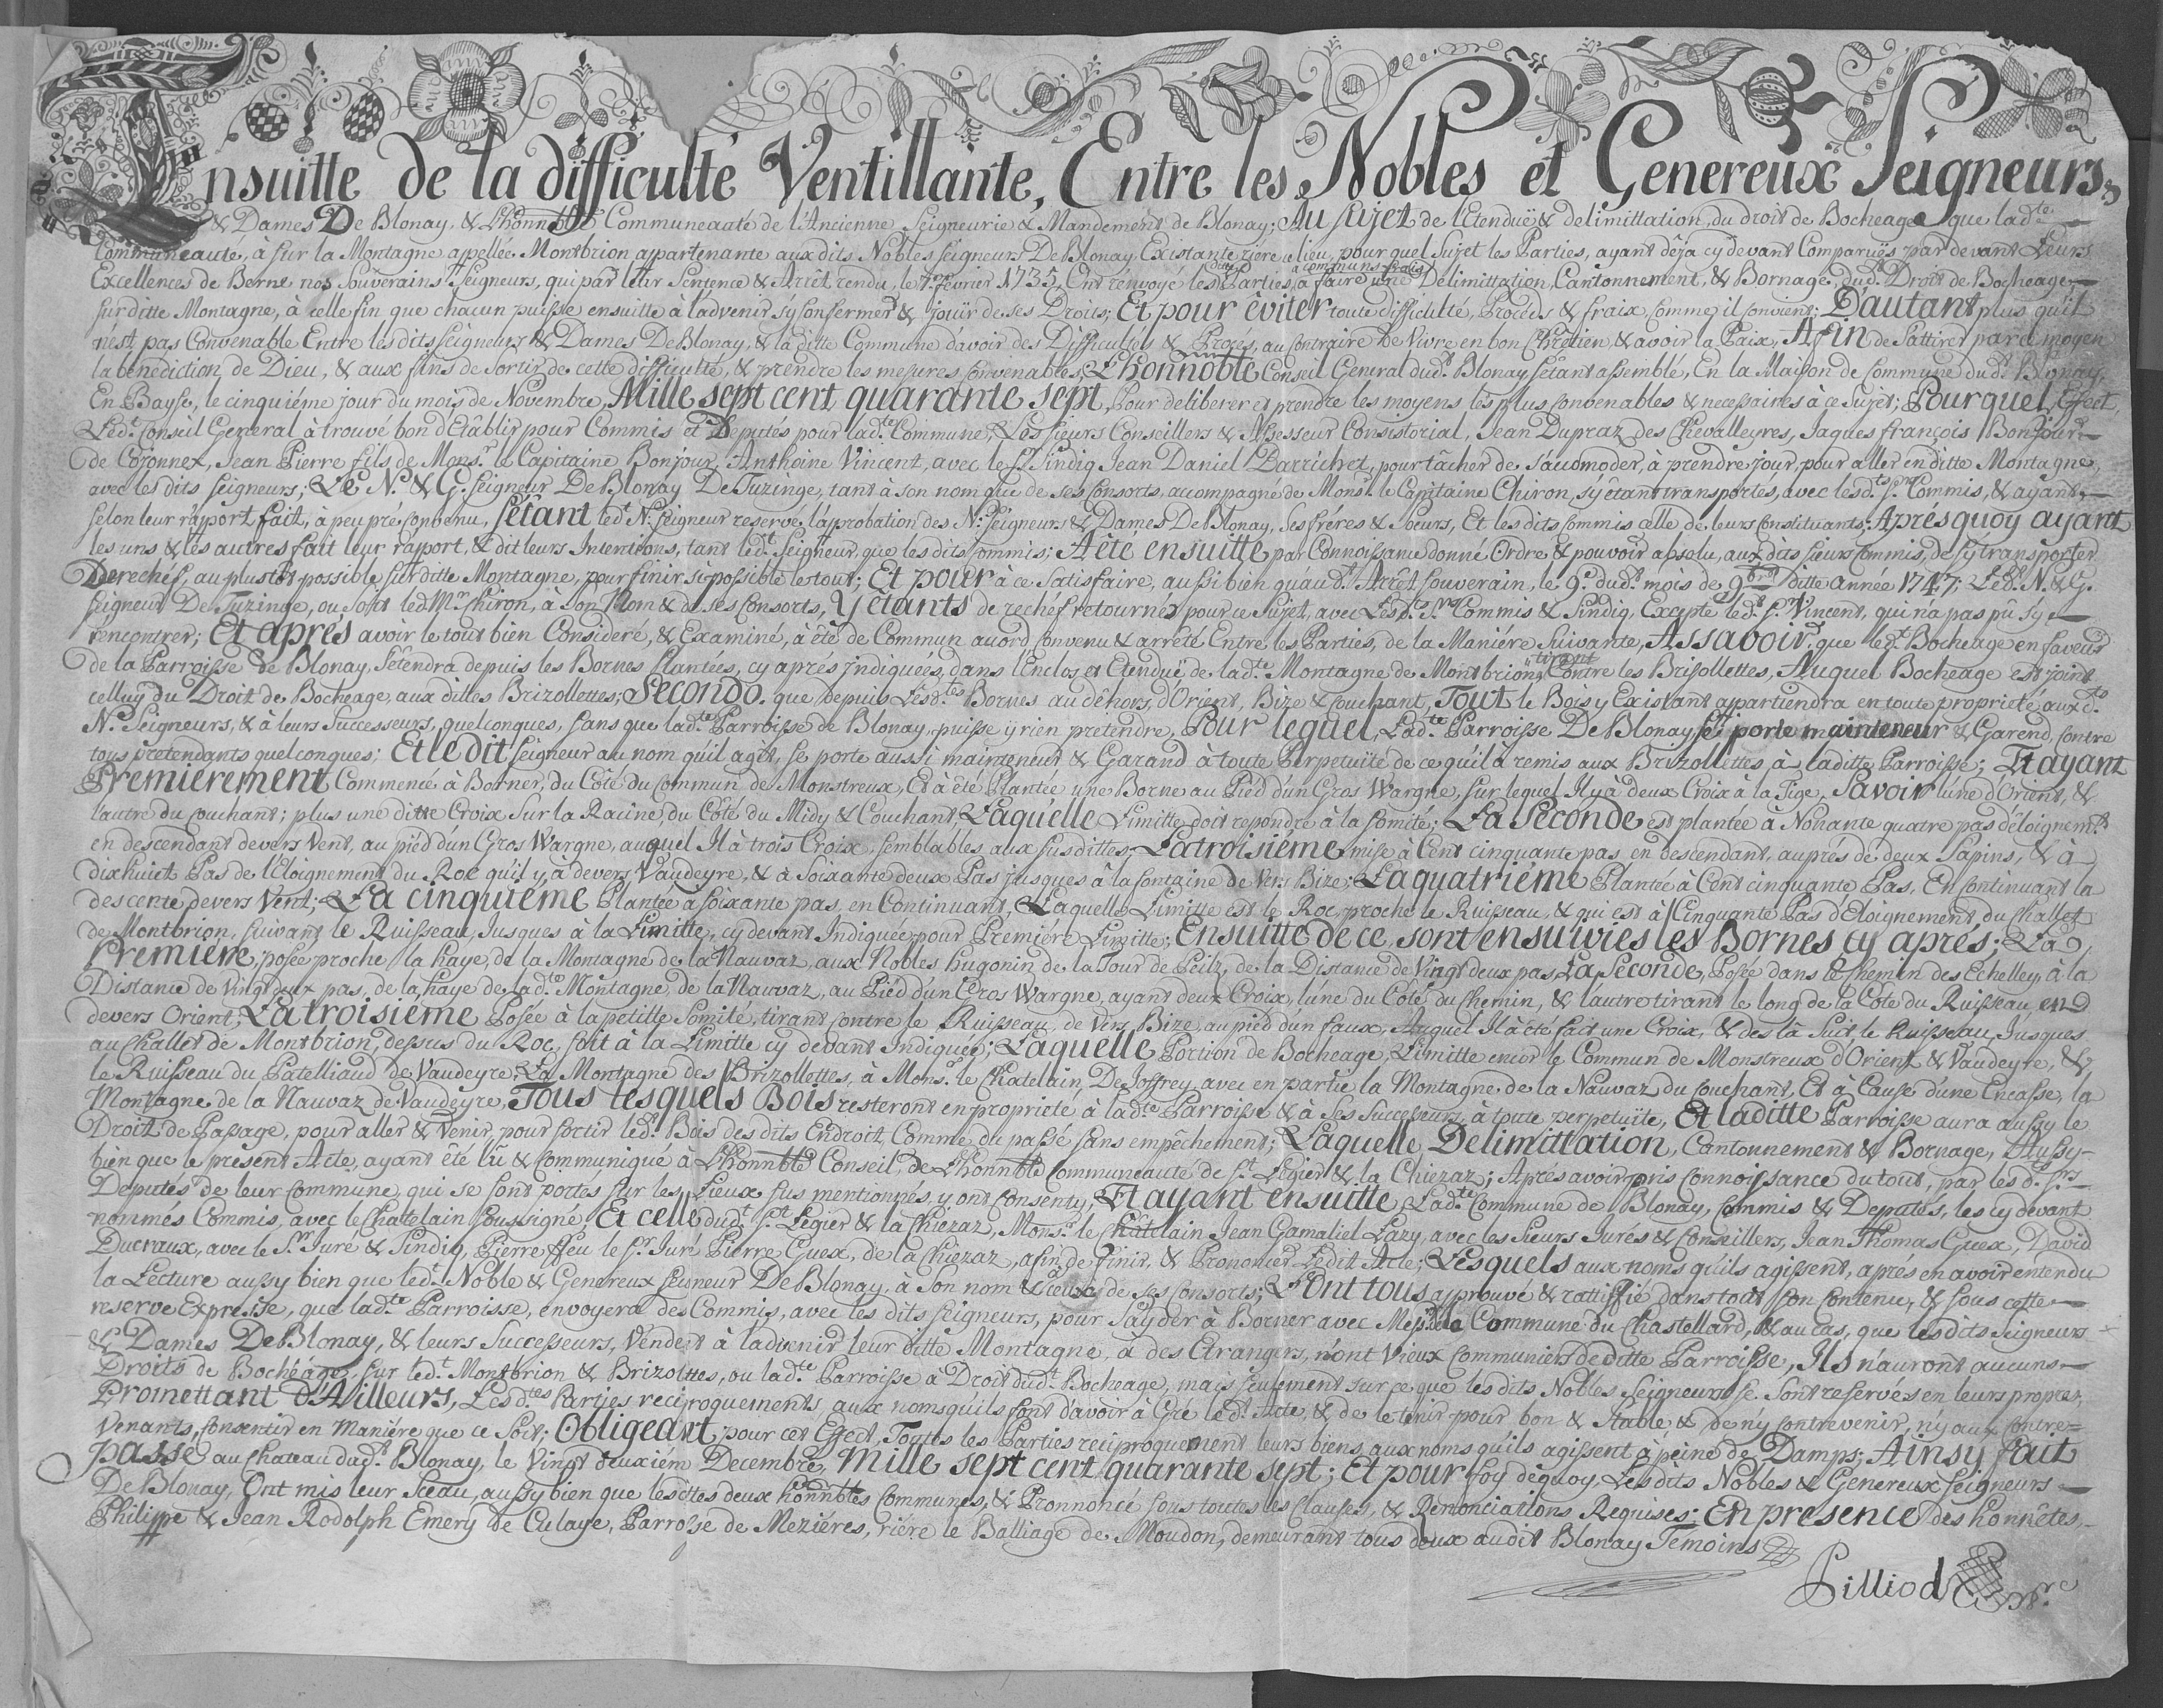 Ensuitte de la difficulté Ventillante, Entre les Nobles et Genereux Seigneurs,
& Dames De Blonay, & Lhonnoble Communeauté de l'Ancienne Seigneurie & Mandement de Blonay; Au sujet de l'Etenduë & delimittation, du droit de Bocheage que ladte
Communeauté, à sur la Montagne appellée Montbrion appartenante aux dits Nobles Seigneurs De Blonay Existante riére ce lieu, pour quel Sujet les Parties, ayant dêja cy devant Comparuës par devant Leurs
Excellences de Berne nos Souverains Seigneurs, qui par leur Sentence & Arrêt rendu, le fevrier 1735, Ont rénvoyé les dittes Parties, à faire à communs frais une Délimittation, Cantonnement, & Bornage, dudt Droit de Bocheage
sur ditte Montagne, à celle fin que chacun puisse ensuitte à l'advenir s'y conformer & jouïr de ses Droits; Et pour éviter toute difficulté, Procéds & fraix comme il convient; D'autant plus qu'il
n'est pas Convenable Entre les dits Seigneurs & Dames De Blonay, & la ditte Commune d'avoir des Difficultés & Procés, au contraire de Vivre en bon Chrêtien, & avoir la Paix, Afin de s'attirer par ce moyen
la bénediction de Dieu, & aux fins de Sortir de cette difficulté, & prendre les mesures convenables, L'honnoble Conseil General dudt Blonay s'étant assemblé, En la Maison de Commune dudt Blonay,
En Bayse, le cinquiéme jour du mois de Novembre, Mille sept cent quarante sept, Pour deliberer et prendre les moyens les plus convenables & necessaires à ce Sujet; Pour quel Effect,
Ledt Conseil General à trouvé bon d'Etâblir pour Commis et Députés pour ladte Commune, Les Sieurs Conseillers & Assesseur Consistorial, Jean Dupraz des Chevalleyres, Jaques françois Bonjour
de Cojonnex, Jean Pierre fils de Monsr le Capitaine Bonjour, Anthoine Vincent, avec le Sr Sindiq Jean Daniel Darrichet, pour tâcher de s'accomoder, à prendre jour, pour aller en ditte Montagne,
avec les dits Seigneurs; Le N. & G. Seigneur De Blonay De Tuzinge, tant à son nom que de ses Consorts, accompagné de Monsr le Capitaine Chiron, s'y étant transportés, avec lesdts Srs Commis, & ayant
selon leur rapport fait, à peu prés convenu, s'étant ledt N. Seigneur reservé l'approbation des N. Seigneurs & Dames De Blonay, ses fréres & Soeurs, Et les dits Commis celle de leurs Constituants; Aprés quoy ayant
les uns & les autres fait leur rapport, & dit leurs Intentions, tant ledt Seigneur que les dits Commis; A été ensuitte par Connoissance donné Ordre & pouvoir absolu, aux dits Sieurs Commis, de s'y transporter
Derechéf, au plustôt possible sur ditte Montagne, pour finir si possible le tout; Et pour à ce Satisfaire, aussi bien qu'au dt Arrêt Souverain, le 9e dudt mois de 9bre ditte année 1747; Ledt N. & G.
Seigneur De Tuzinge, ou soit led Mr Chiron, à son Nom & de ses Consorts, Y étants de rechéf retournés pour ce Sujet, avec Lesdts Srs Commis & Sindiq, Excepté ledt Sr Vincent, qui n'a pas pû s'y
rencontrer; Et aprés avoir le tout bien Consideré, & Examiné, à été de Commun accord, convenu & arrêté, Entre les Parties, de la Maniére Suivante, Assavoir, que ledt Bocheage en faveur
de la Parroisse de Blonay, s'étendra depuis les Bornes Plantées, cy aprés indiquées dans l'Enclos et Etenduë de ladte Montagne de Montbrion, tirant Contre les Brisollettes, Auquel Bocheage est joint
celluy du Droit de Bocheage, aux dittes Brizollettes; Secondo. que depuis Lesdtes Bornes au dehors, d'Orient, Bize & Couchant, Tout le Bois y Existant appartiendra en toute proprieté auxdts
Ns Seigneurs, & à leurs Successeurs, quelconques, sans que ladte Parroisse de Blonay, puisse y rien prétendre, Pour lequel, Ladte Parroisse De Blonay se porte mainteneur & Garend, contre
tous prétendants quelconques; Et le dit Seigneur au nom qu'il agit, se porte aussi mainteneur & Garand à toute Perpetuïté de ce qu'il à remis aux Brizollettes à laditte Parroisse; Et ayant
Premiérement Commencé à Borner, du Côté du Commun de Monstreux, Et à été Plantée une Borne au Pied d'un Gros Wargne, sur lequel Il y à deux Croix à la Tige, Savoir l'une d'Orient, &
l'autre du Couchant; plus une ditte Croix sur la Racine, du Côté du Midy & Couchant, Laquelle Limitte doit repondre à la Somité; La Seconde est plantée à Nonante quatre pas d'éloignemt
en descendant devers Vent, au pied d'un Gros Wargne, auquel Il à trois Croix, semblables aux susdittes; La troisiéme mise à Cent cinquante pas, en descendant, auprés de deux Sapins, & à
dixhuict Pas de l'Eloignement du Roc qu'il y à devers Vaudeyre, & à Soixante deux Pas jusques à la fontaine de Vers Bize; La quatriéme Plantée à Cent cinquante Pas, En Continuant la
descente devers Vent; La cinquiéme Plantée à soixante pas, en Continuant, Laquelle Limitte est le Roc, proche le Ruisseau, & qui est à Cinquante Pas d'Eloignement du Challet
de Montbrion, suivant le Ruisseau, Jusques à la Limitte, cy devant Indiquée pour Premiére Limitte; Ensuitte de ce, sont ensuivies les Bornes cy aprés; La
Premiére, posée proche la haye, de la Montagne de la Nauvaz, aux Nobles hugonin de la Tour de Peilz, de la Distance de Vingt deux pas, La Seconde, Posée dans le Chemin des Echelley, à la
Distance de Vingt deux pas, de la haye de ladte Montagne, de la Nauvaz, au Pied d'un Gros Wargne, ayant deux Croix, l'une du Côté du Chemin, & l'autre tirant le long de la Côte du Ruisseau, en
devers Orient; La troisiéme Posée à la petitte Somité, tirant contre le Ruisseau, de Vers Bize, au pied d'un faux, Auquel Il à été fait une Croix, & dès là suit le Ruisseau, Jusques
au Challet de Montbrion, dessus du Roc, soit à la Limitte cy devant Indiquée; Laquelle Portion de Bocheage, Limitte encor le Commun de Monstreux d'Orient & Vaudeyre, &
le Ruisseau du Patelliaud de Vaudeyre; La Montagne des Brizollettes, à Monsr le Chatelain De Joffrey, avec en partie la Montagne de la Nauvaz du Couchant, Et à Cause d'une Encasse, la
Montagne de la Nauvaz de Vaudeyre, Tous lesquels Bois resteront en proprieté à ladte Parroisse & à ses Successeurs, à toute perpetuïté, Et laditte Parroisse aura aussy le
Droit de Passage, pour aller & Venir, pour sortir ledt Bois desdits Endroit, Comme du passé sans empêchement; Laquelle Délimittation, Cantonnement & Bornage, Aussy
bien que le présent Acte, ayant été lû & Communiqué à L'honnble Conseil, de L'honnble Communeauté, de St Légier & la Chiezaz; Aprés avoir pris connoissance du tout, par les dts Srs
Deputés de leur Commune, qui se sont portés sur les Lieux sus mentionnés, y ont consenty, Et ayant ensuitte Ladte Commune de Blonay, Commis & Deputés, les cy devant
nommés Commis, avec le Chatelain soussigné; Et celle dudt St Légier & la Chiézaz, Monsr le Châtelain Jean Gamaliel Lazy, avec les Sieurs Jurés & Conseillers, Jean Thomas Guex, David
Ducraux, avec le Sr Juré & Sindiq, Pierre ffeu le Sr Juré Pierre Guex, de la Chiézaz, afin de finir, & Prononcer Ledit Acte; Lesquels aux noms qu'ils agissent, aprés en avoir entendu
la Lecture aussy bien que ledt Noble & Genereux Seigneur De Blonay, à son nom & à celluy de ses Consorts; L'Ont tous approuvé & rattiffié dans tout son Contenu, & sous cette
reserve Expresse, que ladte Parroisse, envoyera des Commis, avec les dits Seigneurs, pour s'ayder à Borner avec Messrs de la Commune du Chastellard, & au Cas, que les dits Seigneurs
& Dames De Blonay, & leurs Successeurs, Vendent à l'advenir leur ditte Montagne, à des Etrangers, n'ont Vieux Communiers de ditte Parroisse, Ils n'auront aucuns
Droits de Bochéage, sur ledt Montbrion & Brizolttes, ou ladte Parroisse à Droit dudt Bocheage, mais seulement sur ce que les dits Nobles Seigneurs se sont reservés en leurs propres,
Promettant d'Ailleurs, Lesdtes Parties reciproquements, aux noms qu'ils font d'avoir à Gré ledt Acte, & de le tenir pour bon & Stable & de n'y contrevenir, ny aux contre=
venants, consentir en Maniére que ce Soit; Obligeant, pour cet Effect, Toutes les Parties reciproquement leurs biens, aux noms qu'ils agissent à peine de Damps; Ainsy fait
passé au Chateau dudt Blonay, le Vingt deuxiém Decembre, Mille sept cent quarante sept; Et pour foy dequoy, Les dits Nobles & Genereux Seigneurs
De Blonay, Ont mis leur Sceau, aussy bien que les dittes deux honnbles Communes, & Pronnoncé sous toutes les Clauses, & Rénonciations Requises; En presence des honnêtes,
Philippe & Jean Rodolph Emery de Culaye, Parroisse de Meziéres, riére le Balliage de Moudon, demeurant tous deux audit Blonay Témoins
Pilliod